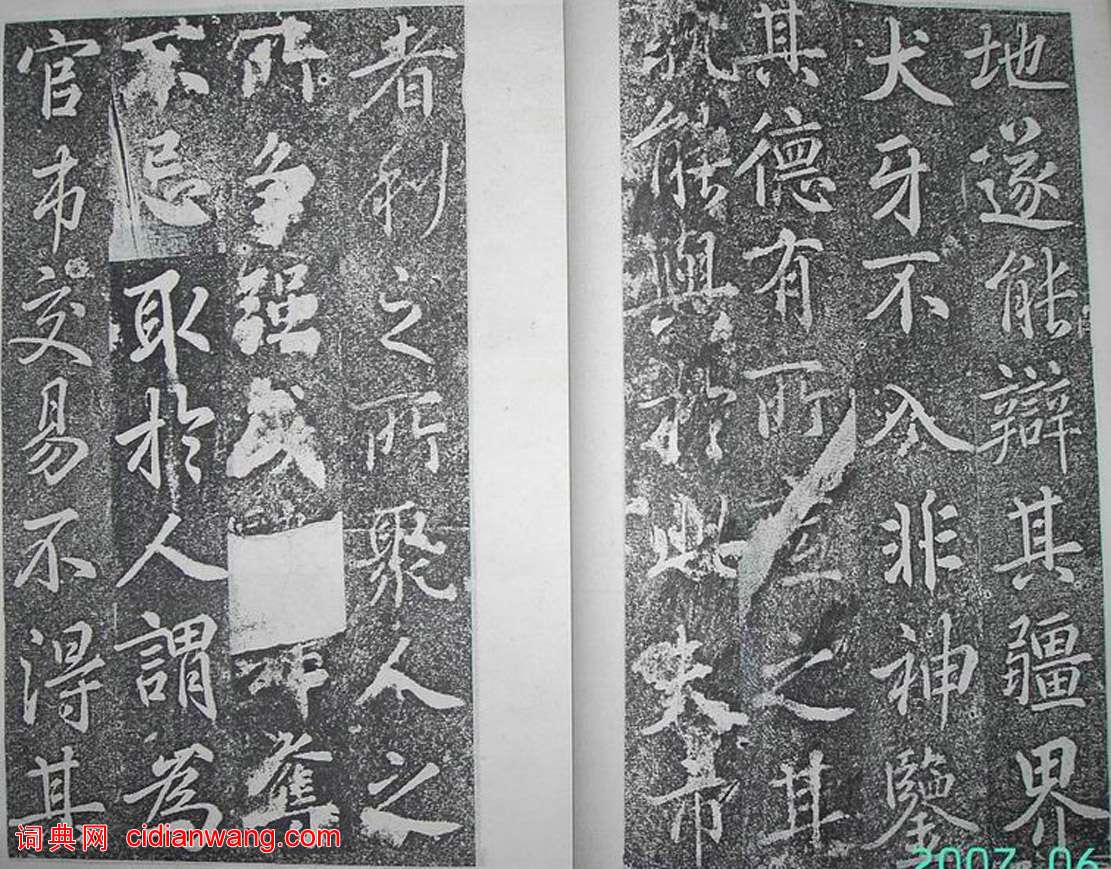 地遂能辯其疆界
犬牙不入非神鑒
其德有所至之其
孰能與於此夫市
者利之所聚人之
所爭強戎奪
不忌取於人謂為
官市交易不得其
词典网 cidianwang.com
2007 06